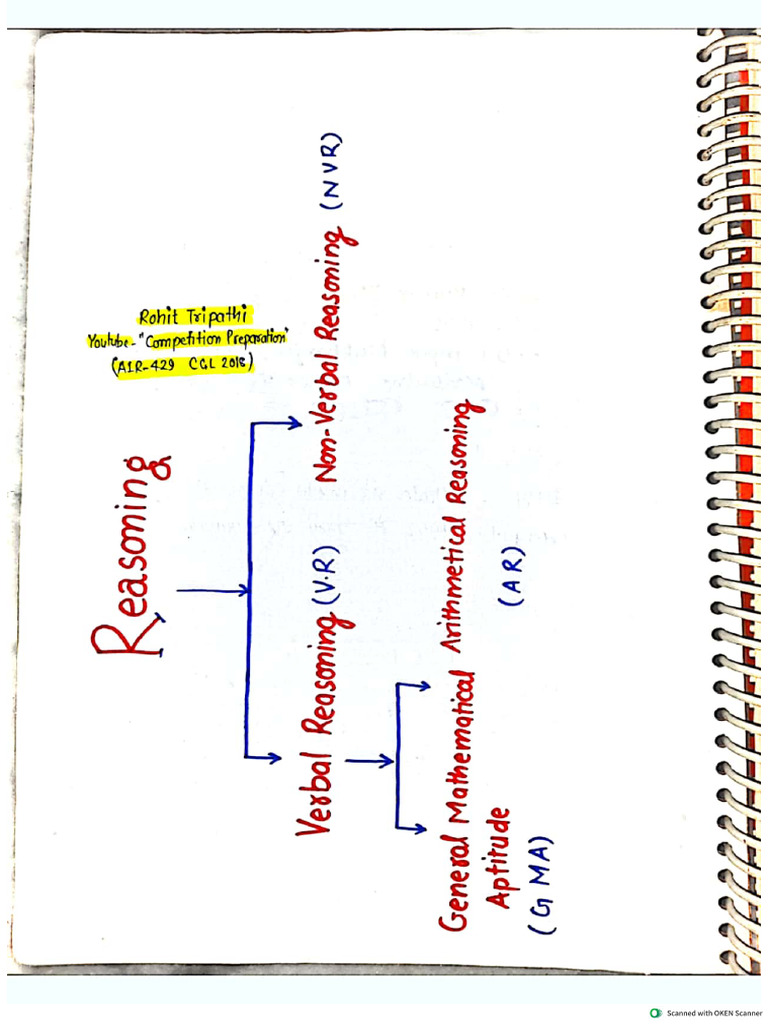 Reasoning
Rohit Tripathi
Youtube- "Competition Preparation"
(AIR-429 CGL 2018)
Verbal Reasoning (V.R)
Non-Verbal Reasoning (NVR)
General Mathematical
Aptitude
(GMA)
Arithmetical Reasoning
(AR)
Scanned with OKEN Scanner